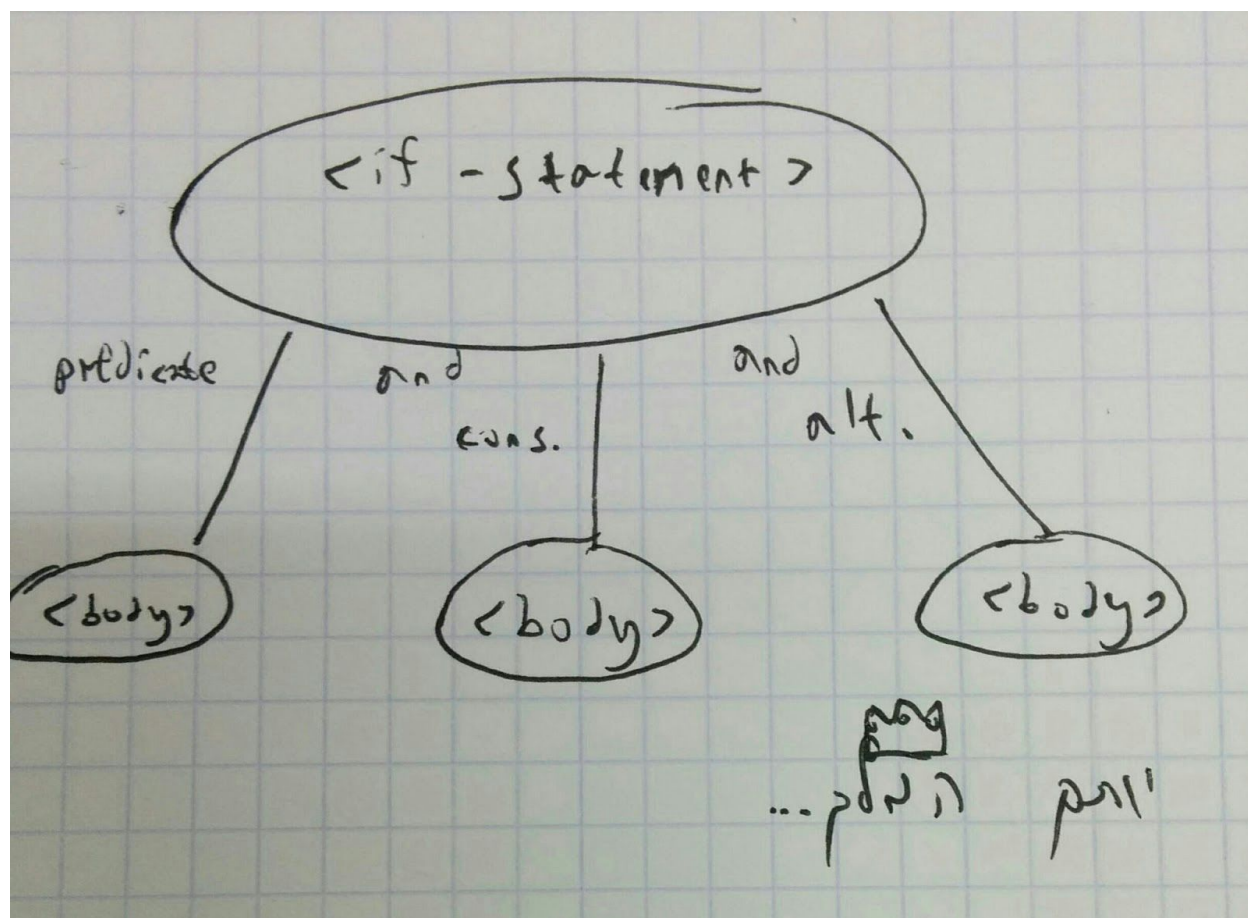 <if-statement>
predicate and and
cons. alt.
<body> <body> <body>
יותם המלך...